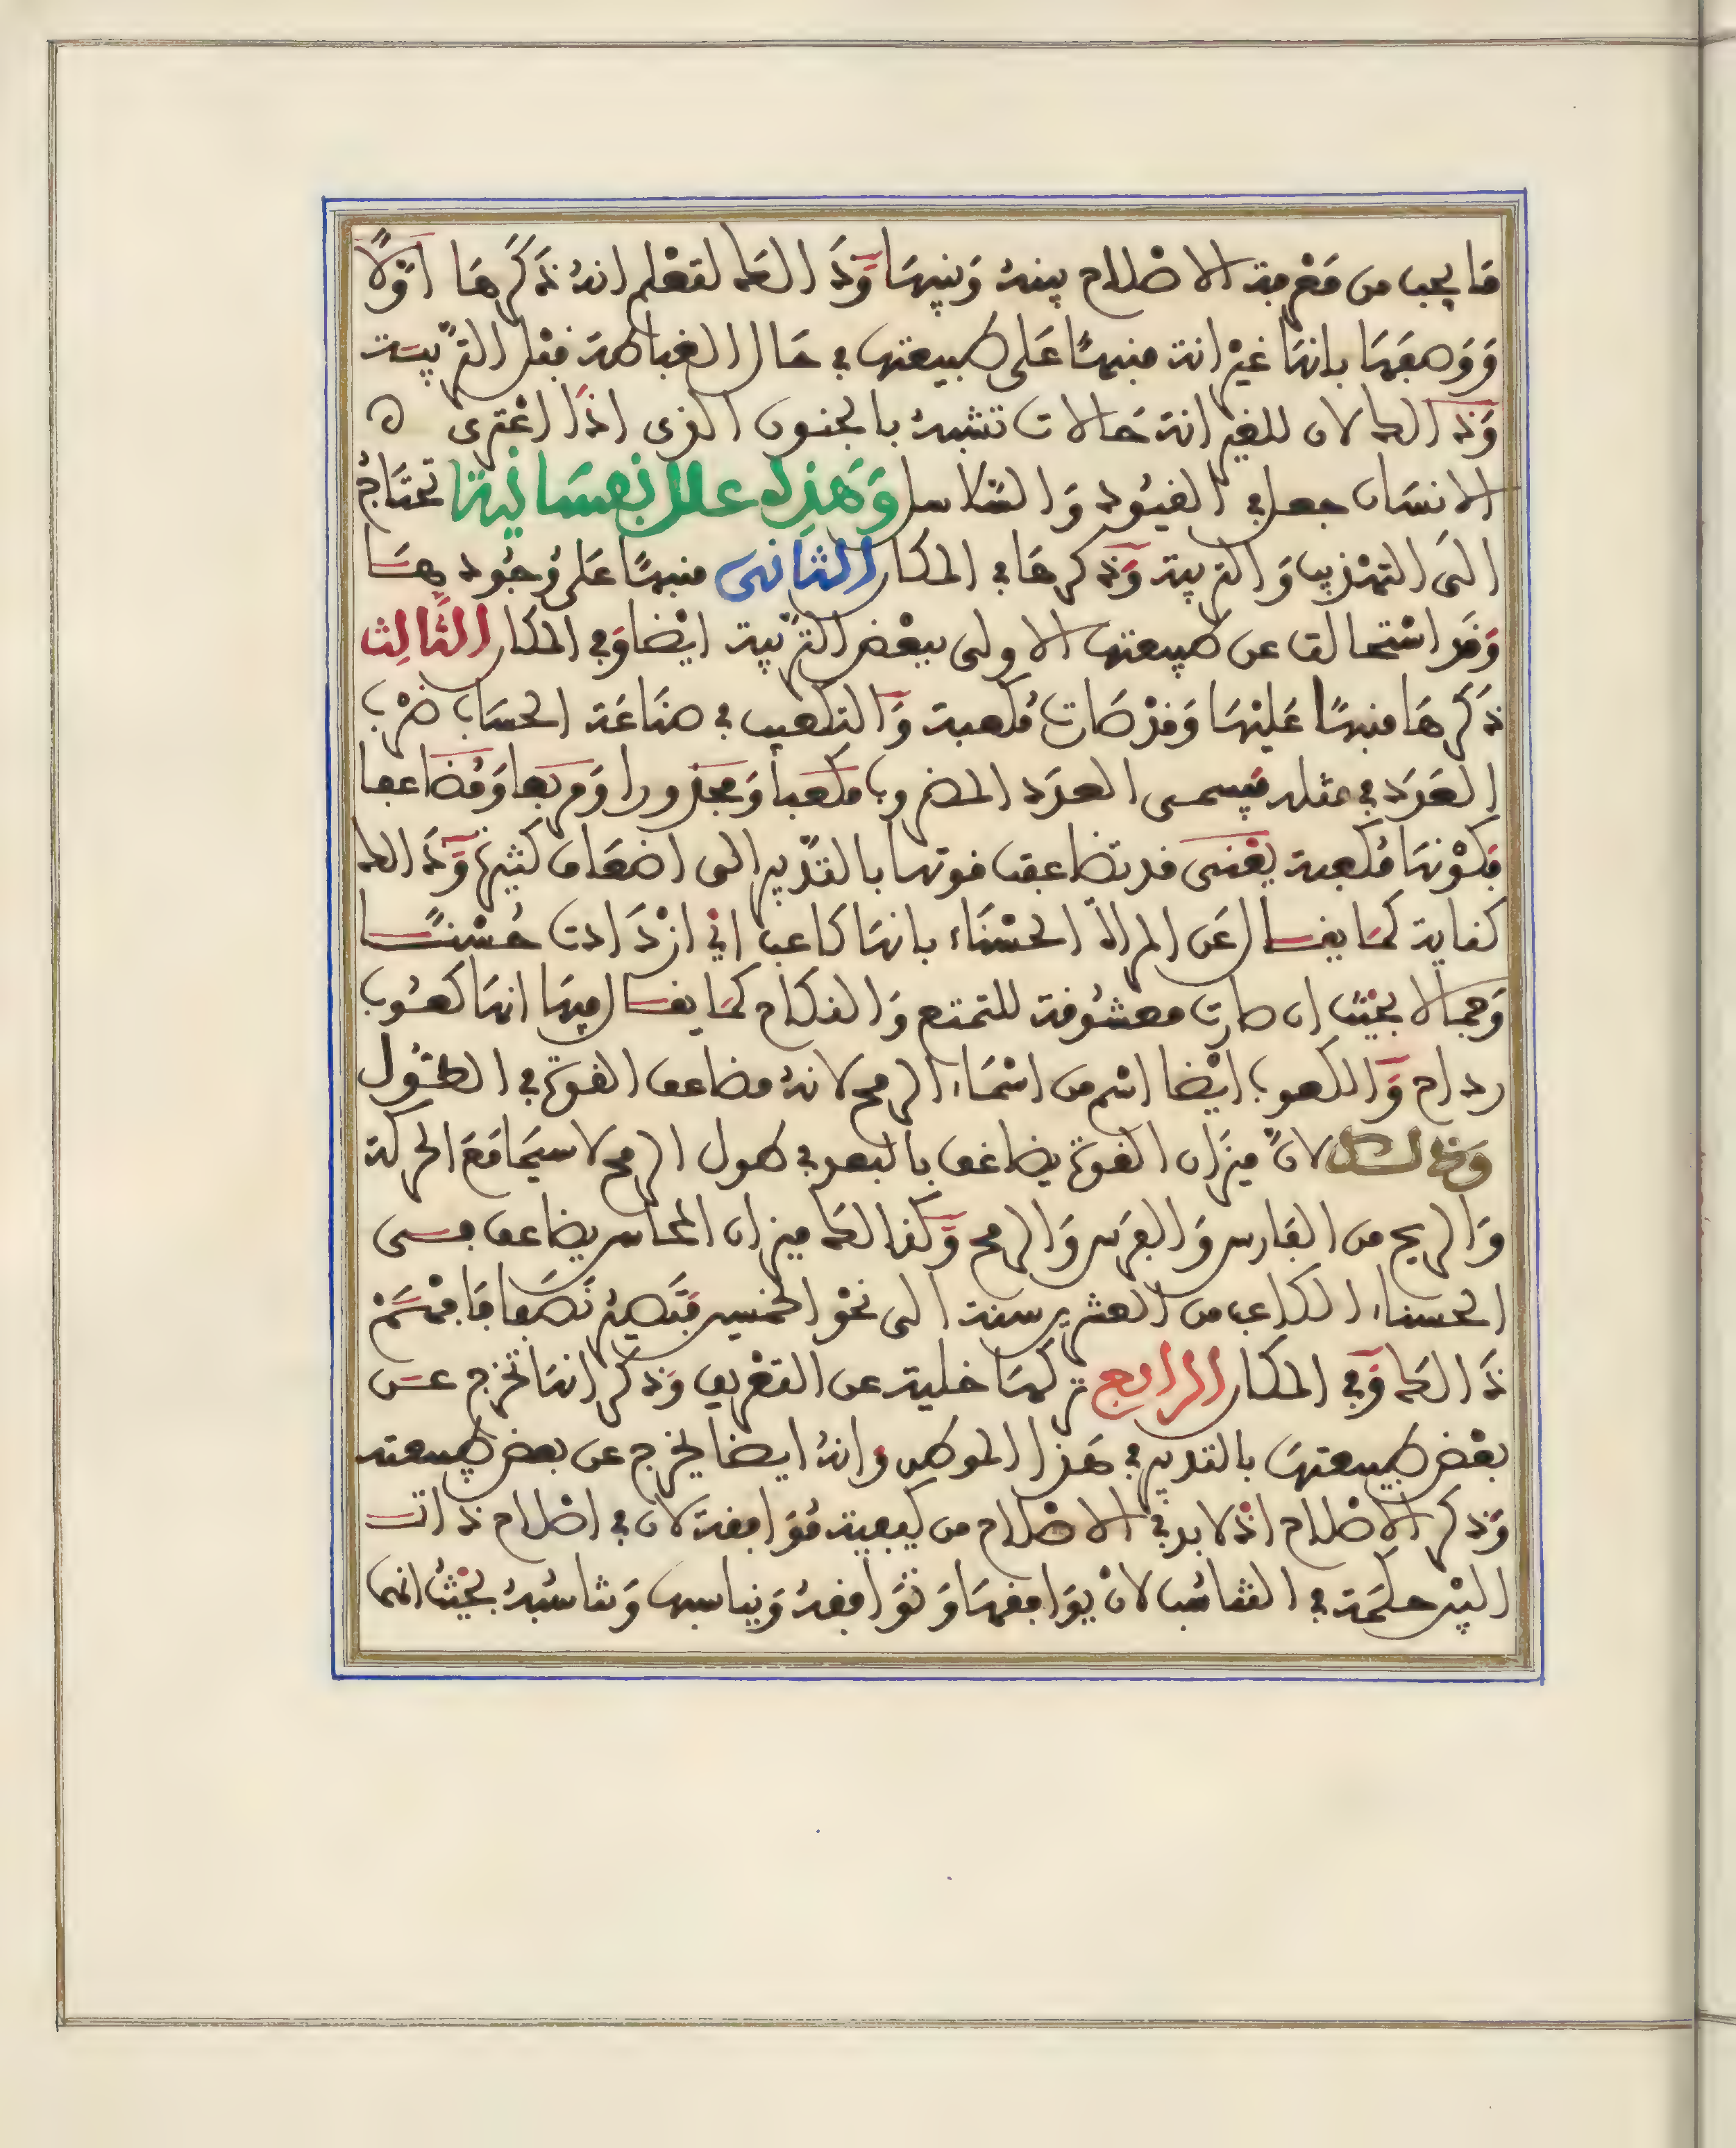 ما يجب من معرفة الاصلاح بينه وبينها وذالك لتعلم انه ذكرها اولا
ووصفها بانها غيرانة منبها على طبيعتها في حال الغباطة قبل التربية
وذالك لان للغيرانة حالات تشبه بالجنون الذى اذا اعترى ه
الانسان جعل في القيود والسلاسل وهذه علل نفسانية تحتاج
الى التهذيب والتربية وذكرها في المكان الثانى منبها على وجودها
وقد استحالت عن طبيعتها الاولى ببعض التربية ايضا وفي المكان الثالث
ذكرها منبها عليها وقد صارت مكعبة والتكعيب في صناعة الحساب ضرب
العدد في مثله فيسمى العدد المضروب مكعبا ومجذورا ومربعا ومضاعفا
فكونها مكعبة يعنى قد تضاعفت قوتها بالتدبير الى اضعاف كثيرة وذالك
كناية كما يقال عن المراة الحسناء بانها كاعب اي ازدادت حسنا
وجمالا بحيث ان صارت معشوقة للتمتع والنكاح كما يقال فيها انها كعوب
رداح والكعوب ايضا اسم من اسماء الرمح لانه مضاعف القوة في الطول
وذالك لان ميزان القوة يضاعف بالبعد في طول الرمح لا سيما مع الحركة
والريح من الفارس والفرس والرمح وكذالك ميزان المحاسن يضاعف فى
الحسناء الكاعب من العشرين سنة الى نحو الخمسين فتصير نصفا فافهم
ذالك وفي المكان الرابع تركها خلية عن التعريف وذكر انها تخرج عن
بعض طبيعتها بالتدبير في هذا الموطن وانه ايضا يخرج عن بعض طبيعته
وذكر الاصلاح اذ لا بد في الاصلاح من كيفية موافقة لان في اصلاح ذات
البين حكمة في التناسب لان يوافقها وتوافقه ويناسبها وتناسبه بحيث انهما